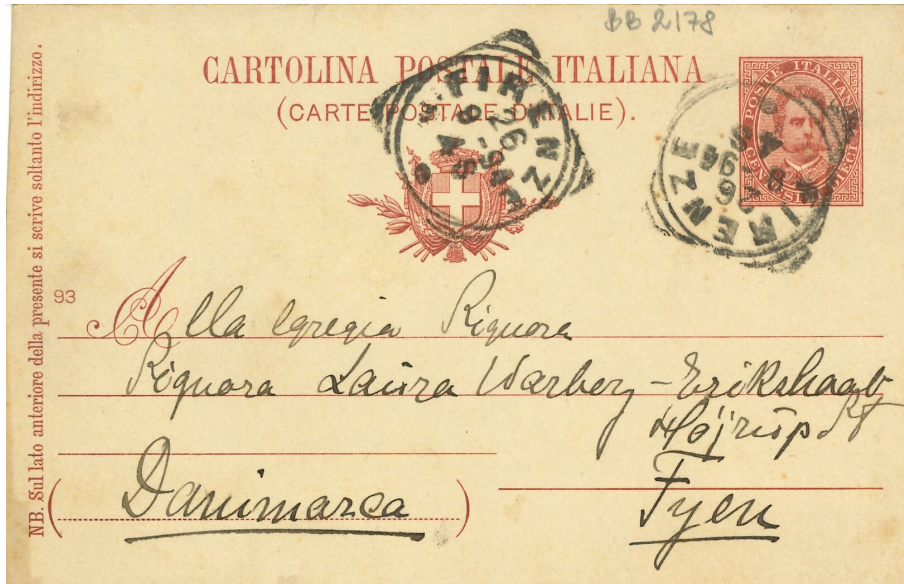 BB 2178
CARTOLINA POSTALE ITALIANA
(CARTE POSTALE D'ITALIE).
FIRENZE
FIRENZE
POSTE ITALIANE
CENTESIMI DIECI
NB. Sul lato anteriore della presente si scrive soltanto l'indirizzo.
93
Alla Egregia Signora
Signora Laura Warberg - Erikshaab
Højrup St
Danimarca
Fyen